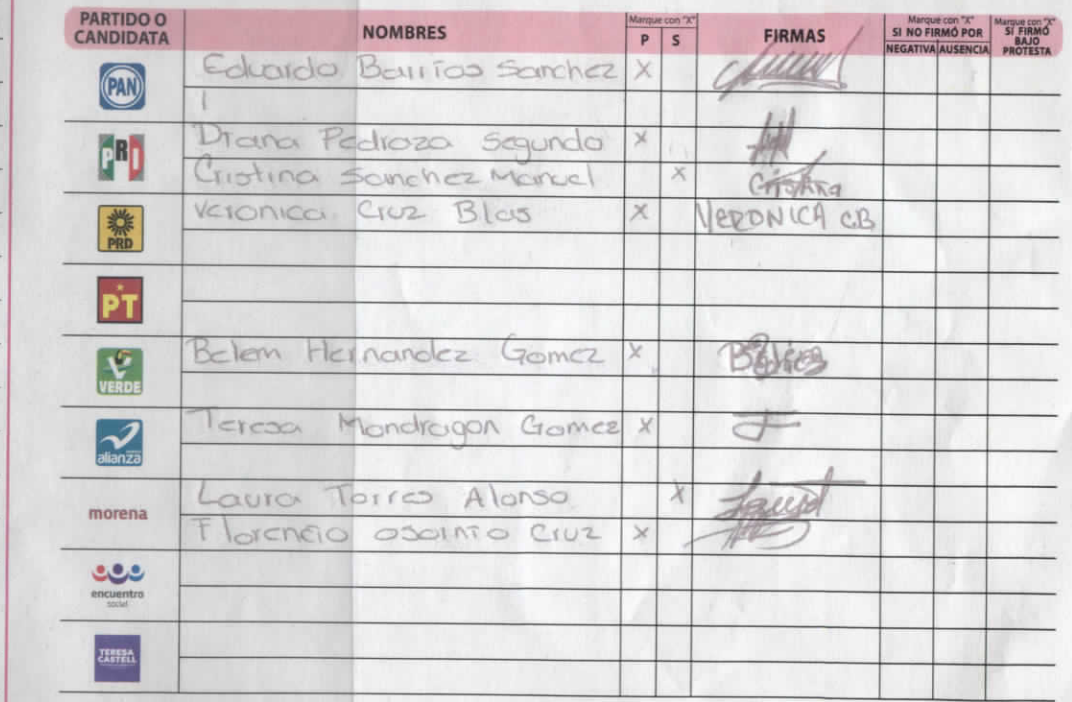 PARTIDO O CANDIDATA NOMBRES Marque con "X" P S FIRMAS Marque con "X" SI NO FIRMÓ POR NEGATIVA AUSENCIA Marque con "X" SI FIRMÓ BAJO PROTESTA
PAN Eduardo Barrios Sanchez X
PRI Diana Pedroza Segundo X
Cristina Sanchez Manuel X Cristina
PRD Veronica Cruz Blas X VERONICA CB
PT
VERDE Belem Hernandez Gomez X
alianza Teresa Mondragon Gomez X
morena Laura Torres Alonso X
Florencio Osornio Cruz X
encuentro social
TERESA CASTELL